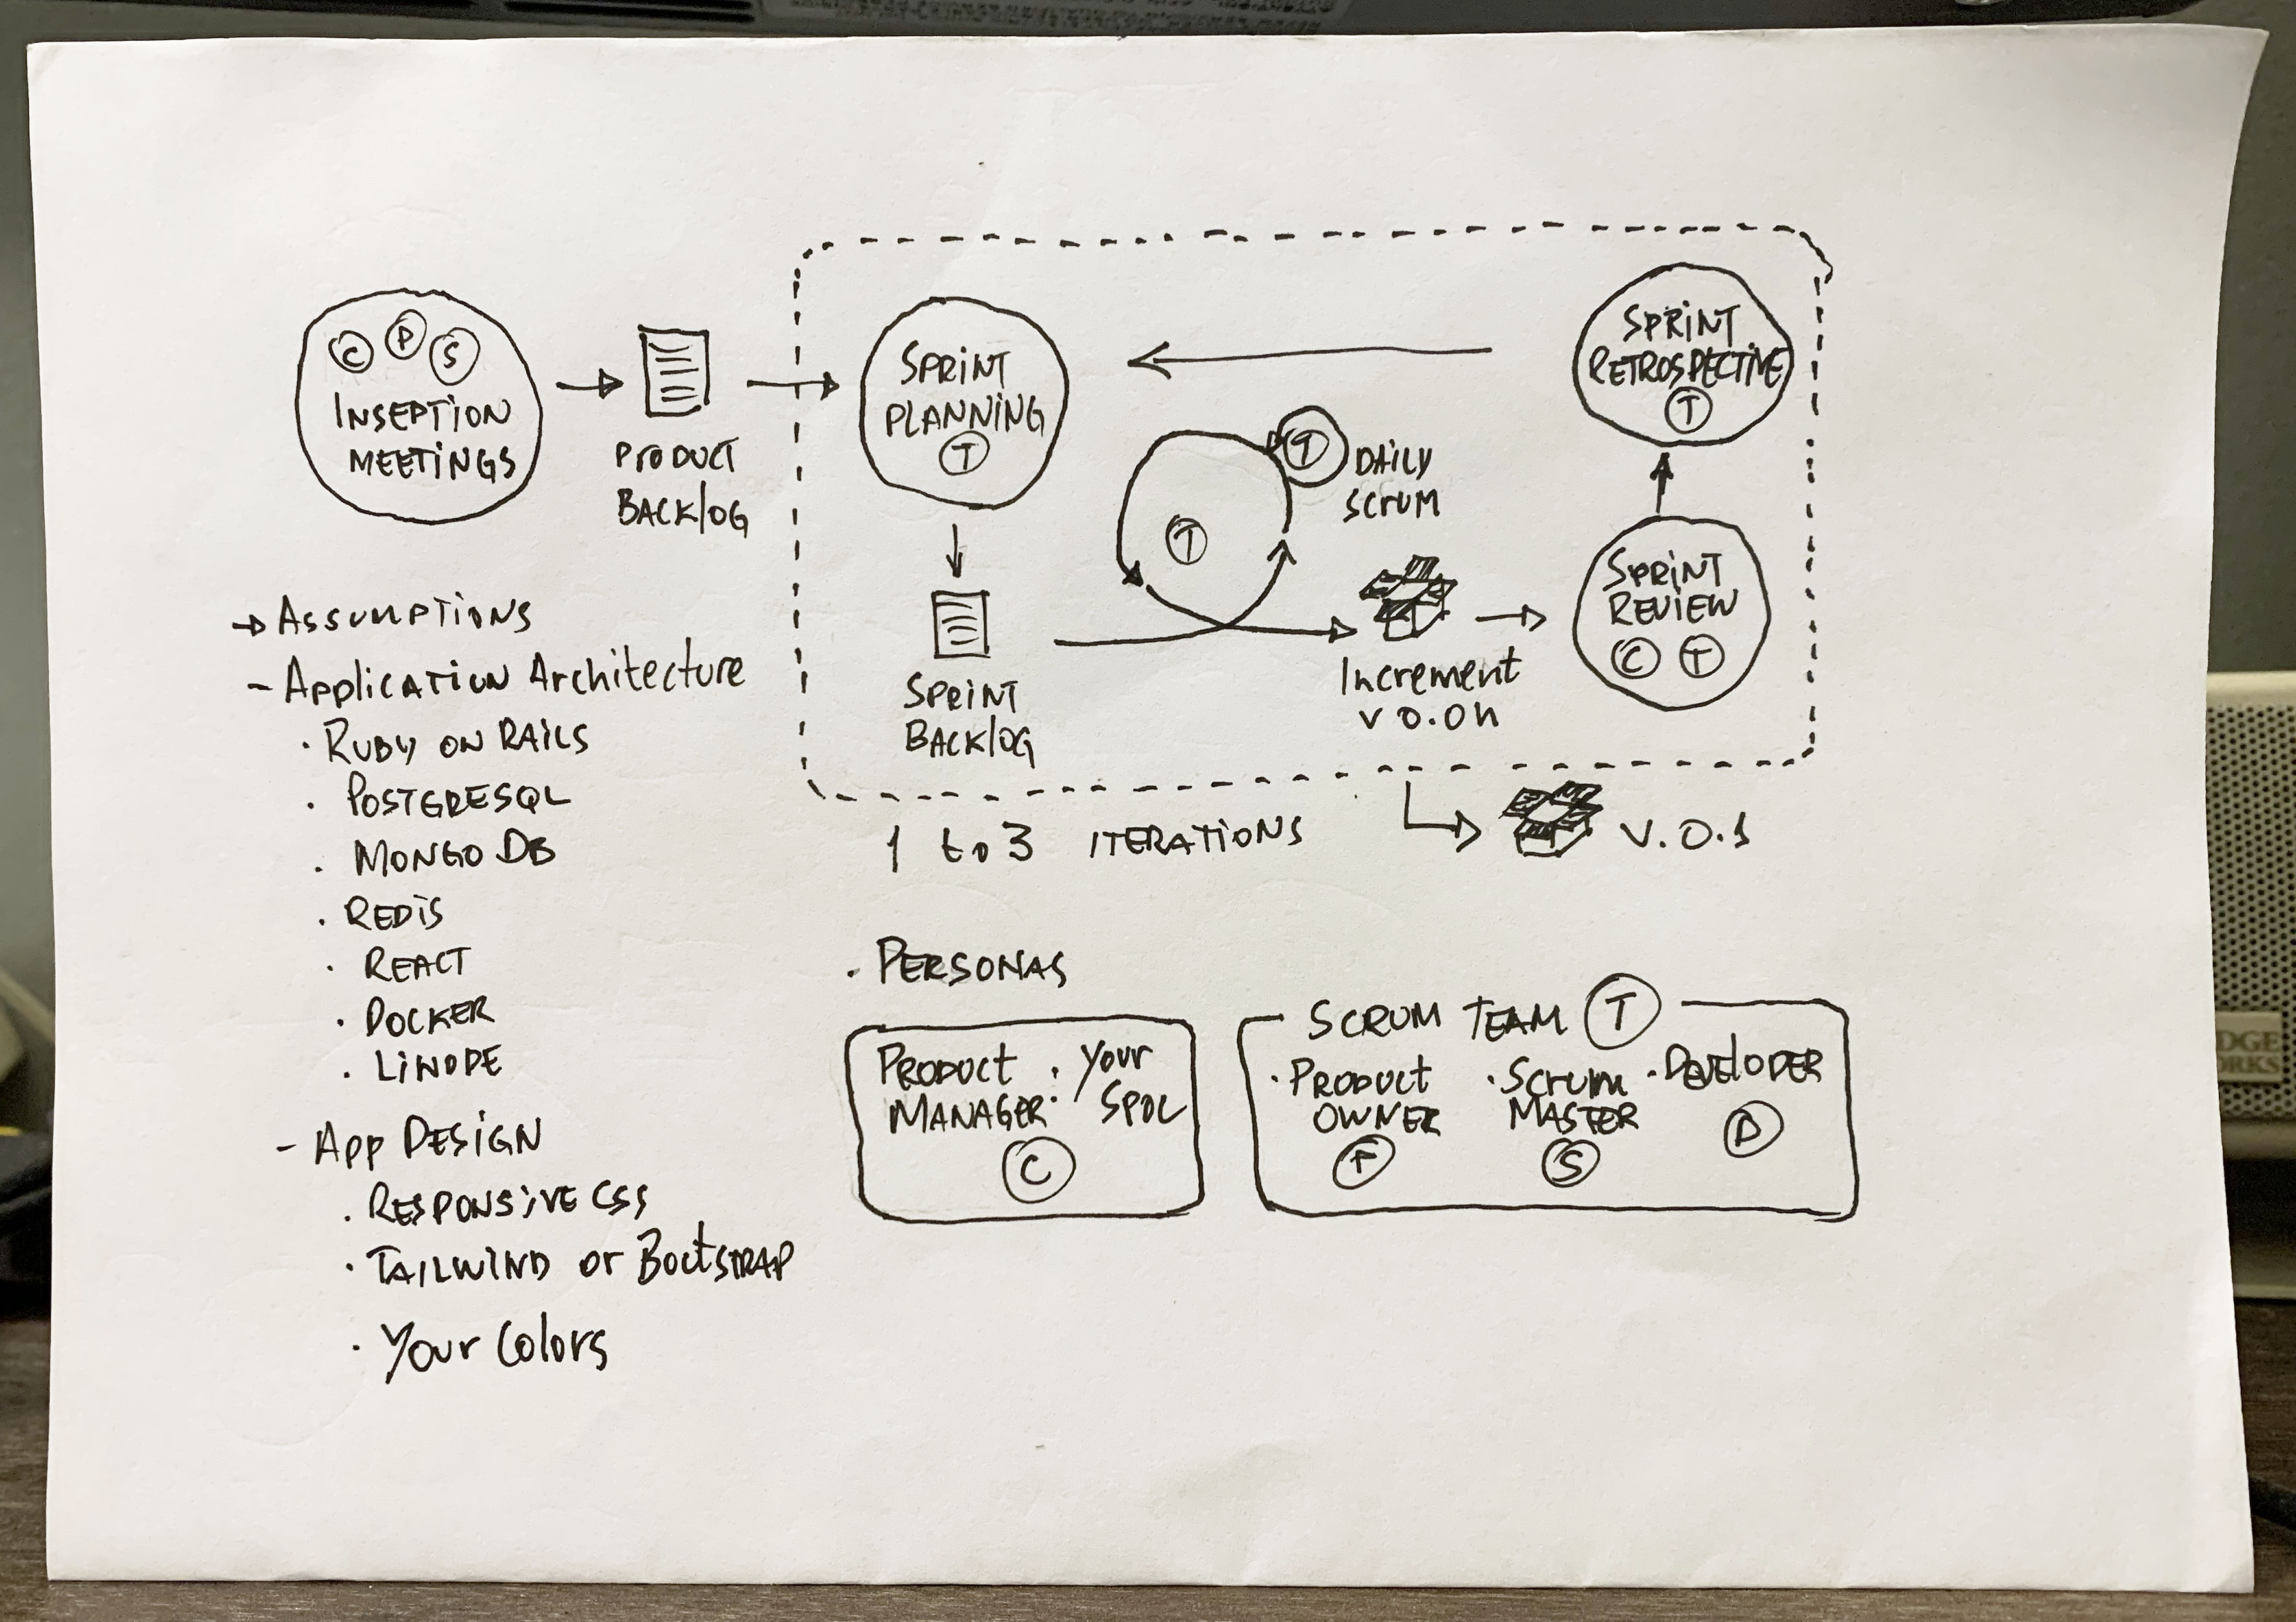 C P S
INSEPTION
MEETINGS
PRODUCT
BACKLOG
SPRINT
PLANNING
T
SPRINT
BACKLOG
T
T
DAILY
SCRUM
Increment
v 0.0n
SPRINT
REVIEW
C T
SPRINT
RETROSPECTIVE
T
1 to 3 ITERATIONS
V.0.1
→ ASSUMPTIONS
- Application Architecture
· RUBY ON RAILS
· POSTGRESQL
· MONGO DB
· REDIS
· REACT
· DOCKER
· LINODE
- App DESIGN
· RESPONSIVE CSS
· TAILWIND or BootSTRAP
· Your Colors
· PERSONAS
PRODUCT
MANAGER
· Your
SPOC
C
SCRUM TEAM T
· PRODUCT
OWNER
P
· Scrum
MASTER
S
· DEVELOPER
D